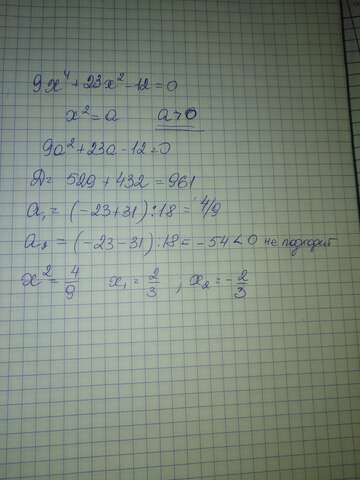 9x⁴ + 23x² - 12 = 0
x² = a    a > 0
9a² + 23a - 12 = 0
D = 529 + 432 = 961
a₁ = (-23 + 31) : 18 = 4/9
a₂ = (-23 - 31) : 18 = -54 < 0 не подходит
x² = 4/9    x₁ = 2/3 ; x₂ = -2/3